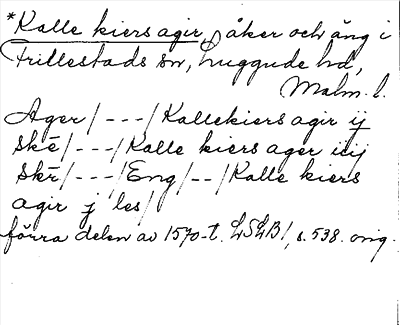 *Kalle kiers agir, åker och äng i
Frillestads sn, Luggude hd,
Malm. l.
Ager/---/Kallekiers agir ij
skē/---/Kalle kiers ager iiij
Skr̄/---/Eng/--/Kalle kiers
agir j les/
förra delen av 1570-t. LSLB1, s. 538. orig.